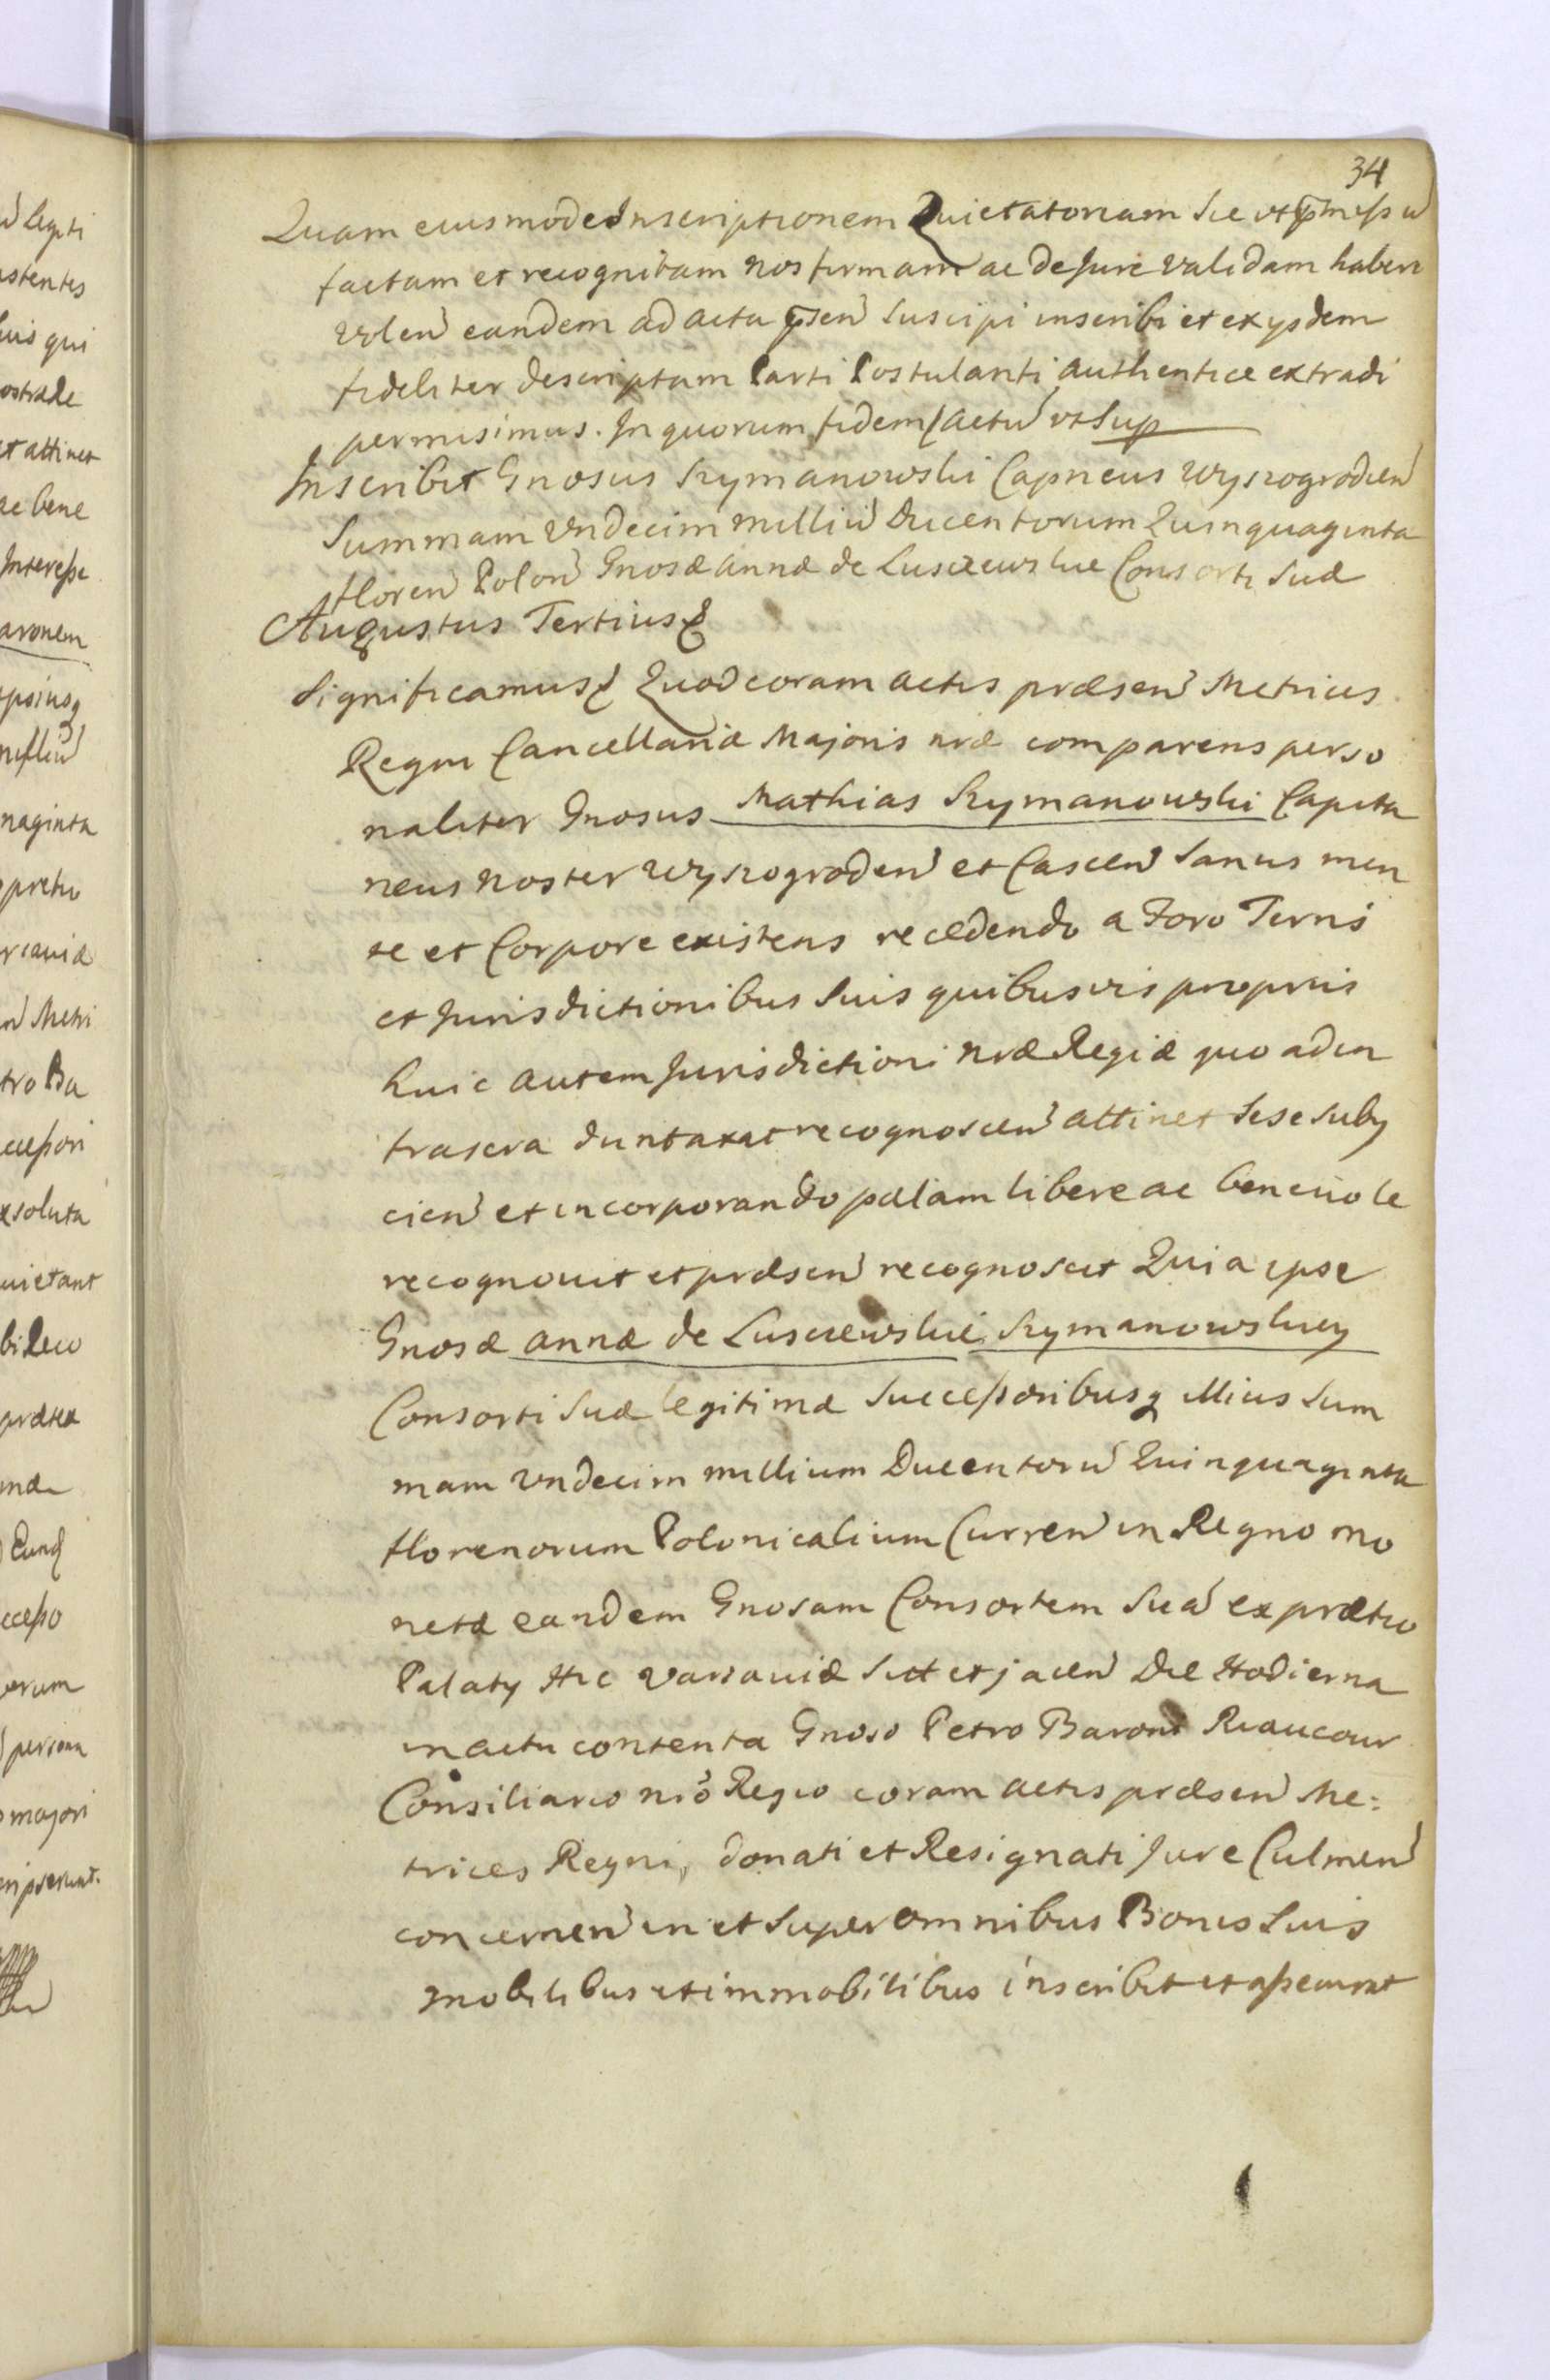 34
Quam eiusmodi Inscriptionem Quietatoriam Sic ut p̄missū
factam et recognitam nos firmam ac de Jure validam haberi
volen̄ eandem ad acta p̄sen̄ Suscipi inscribi et ex ysdem
fideliter descriptam Parti Postulanti authentice extradi
permisimus. In quorum fidem/ actū ut Sup
Inscribit Gnosus Szymanowski Capneus Wyszogrodien̄
Summam Undecim milliū Ducentorum Quinquaginta
floren̄ Polon̄ Gnosæ Annæ de Lusczewskie Consorti Suæ
Augustus Tertius &
Significamus & Quod coram actis præsen̄ Metrices
Regni Cancellariæ Majoris nræ comparens perso
naliter Gnosus Mathias Szymanowski Capita
neus Noster Wyszogroden̄ et Cascen̄ Sanus men
te et Corpore existens recedendo a Foro Terris
et Jurisdictionibus Suis quibusvis propriis
huic autem Jurisdictioni nræ Regiæ quo ad in
trascra duntaxat recognoscen̄ attinet Sese Suby
cien̄ et incorporando palam libere ac benevole
recognovit et præsen̄ recognoscit Quia ipse
Gnosæ Annæ de Lusczewskie Szymanowskiey
Consorti Suæ legitimæ Successoribusq illius Sum
mam Undecim millium Ducentorū Quinquaginta
florenorum Polonicalium Curren̄ in Regno mo
netæ eandem Gnosam Consortem Suā ex prætio
Palaty Hic Varsaviæ Sitt et jacen̄ Die Hodierna
in actu contenta Gnoso Petro Baroni Riaucour
Consiliario nrō Regio coram actis præsen̄ Me:
trices Regni, donati et Resignati Jure Culmen̄
concernen̄ in et Super omnibus Bonis Suis
mobilibus et immobilibus inscribit et assecurat
ū legiti
istentes
luis qui
ostrade
et attinet
ac bene
Interesse
aronem
ipsiusq
naginta
pretio
n̄ Metri
tro Ba
ccessori
exsoluta
uietant
præter
ccesso
persona
majori